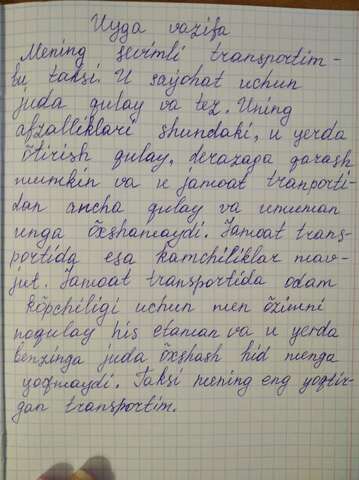 Uyga vazifa
Mening sevimli transportim -
bu taksi. U sayohat uchun
juda qulay va tez. Uning
afzalliklari shundaki, u yerda
õtirish qulay, derazaga qarash
mumkin va u jamoat tranporti-
dan ancha qulay va umuman
unga õxshamaydi. Jamoat trans-
portida esa kamchiliklar mav-
jut. Jamoat transportida odam
kõpchiligi uchun men õzimni
noqulay his etaman va u yerda
benzinga juda õxshash hid menga
yoqmaydi. Taksi mening eng yoqtir-
gan transportim.